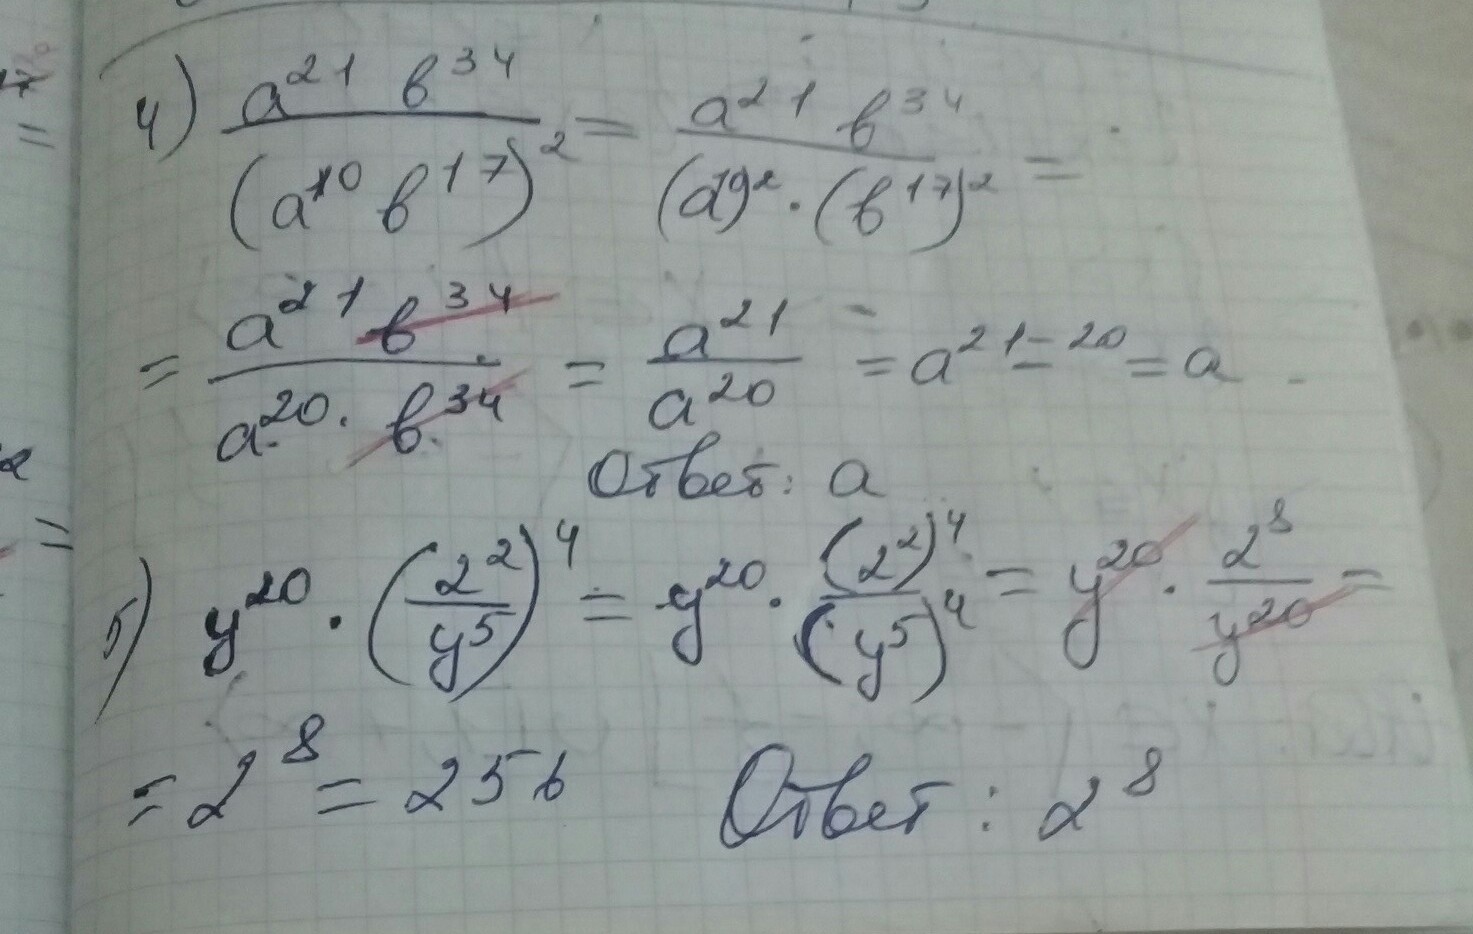 4) a²¹ в³⁴ / (a¹⁰ в¹⁷)² = a²¹ в³⁴ / (a¹⁰)² · (в¹⁷)² =
= a²¹ в³⁴ / a²⁰ · в³⁴ = a²¹ / a²⁰ = a²¹⁻²⁰ = a
Ответ: a
5) y²⁰ · (2² / y⁵)⁴ = y²⁰ · (2²)⁴ / (y⁵)⁴ = y²⁰ · 2⁸ / y²⁰ =
= 2⁸ = 256 Ответ: 2⁸